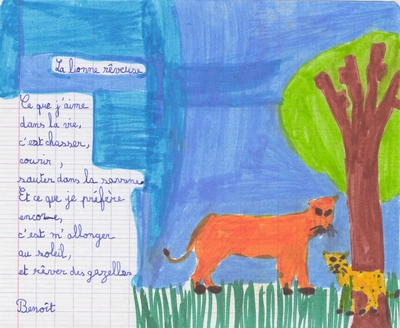 La lionne rêveuse
Ce que j'aime
dans la vie,
c'est chasser,
courir,
sauter dans la savane.
Et ce que je préfère
encore,
c'est m'allonger
au soleil,
et rêver des gazelles
Benoît